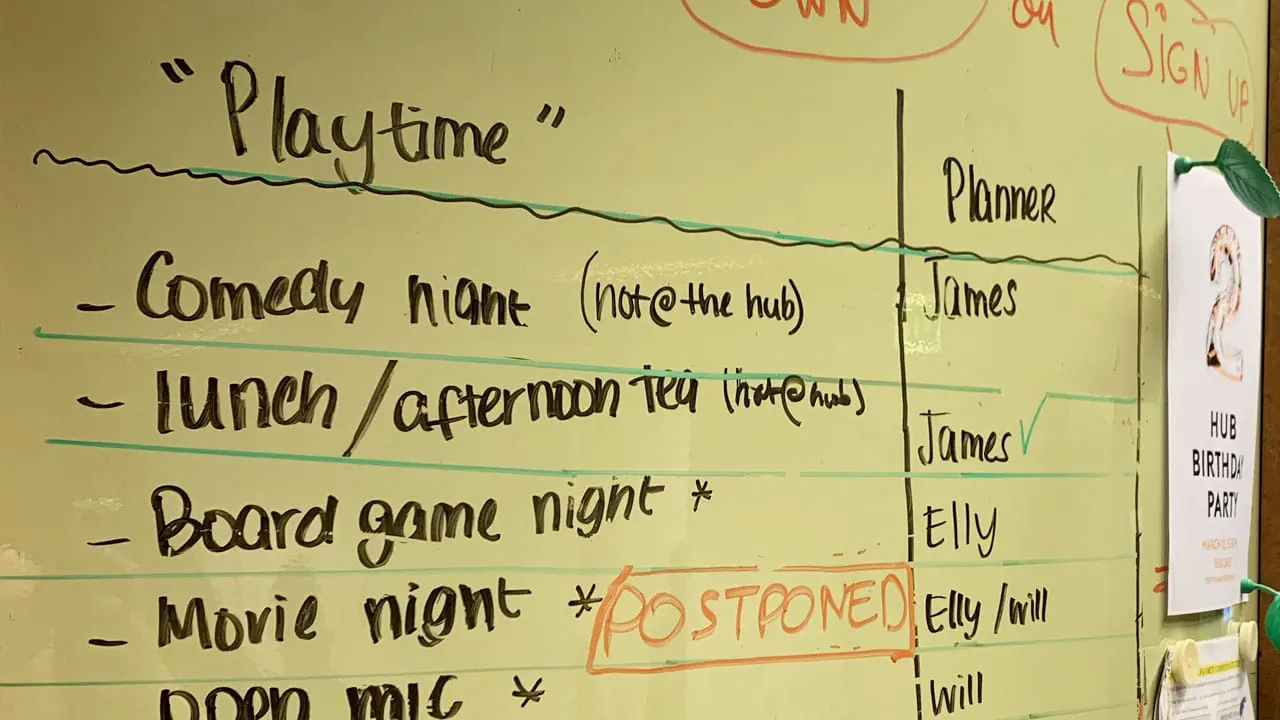 OWN
on
SIGN UP
"Playtime"
Planner
- Comedy night (not@the hub)
James
- lunch/afternoon tea (not@hub)
James ✓
- Board game night *
Elly
- Movie night * POSTPONED
Elly/Will
open mic *
Will
2
HUB
BIRTHDAY
PARTY